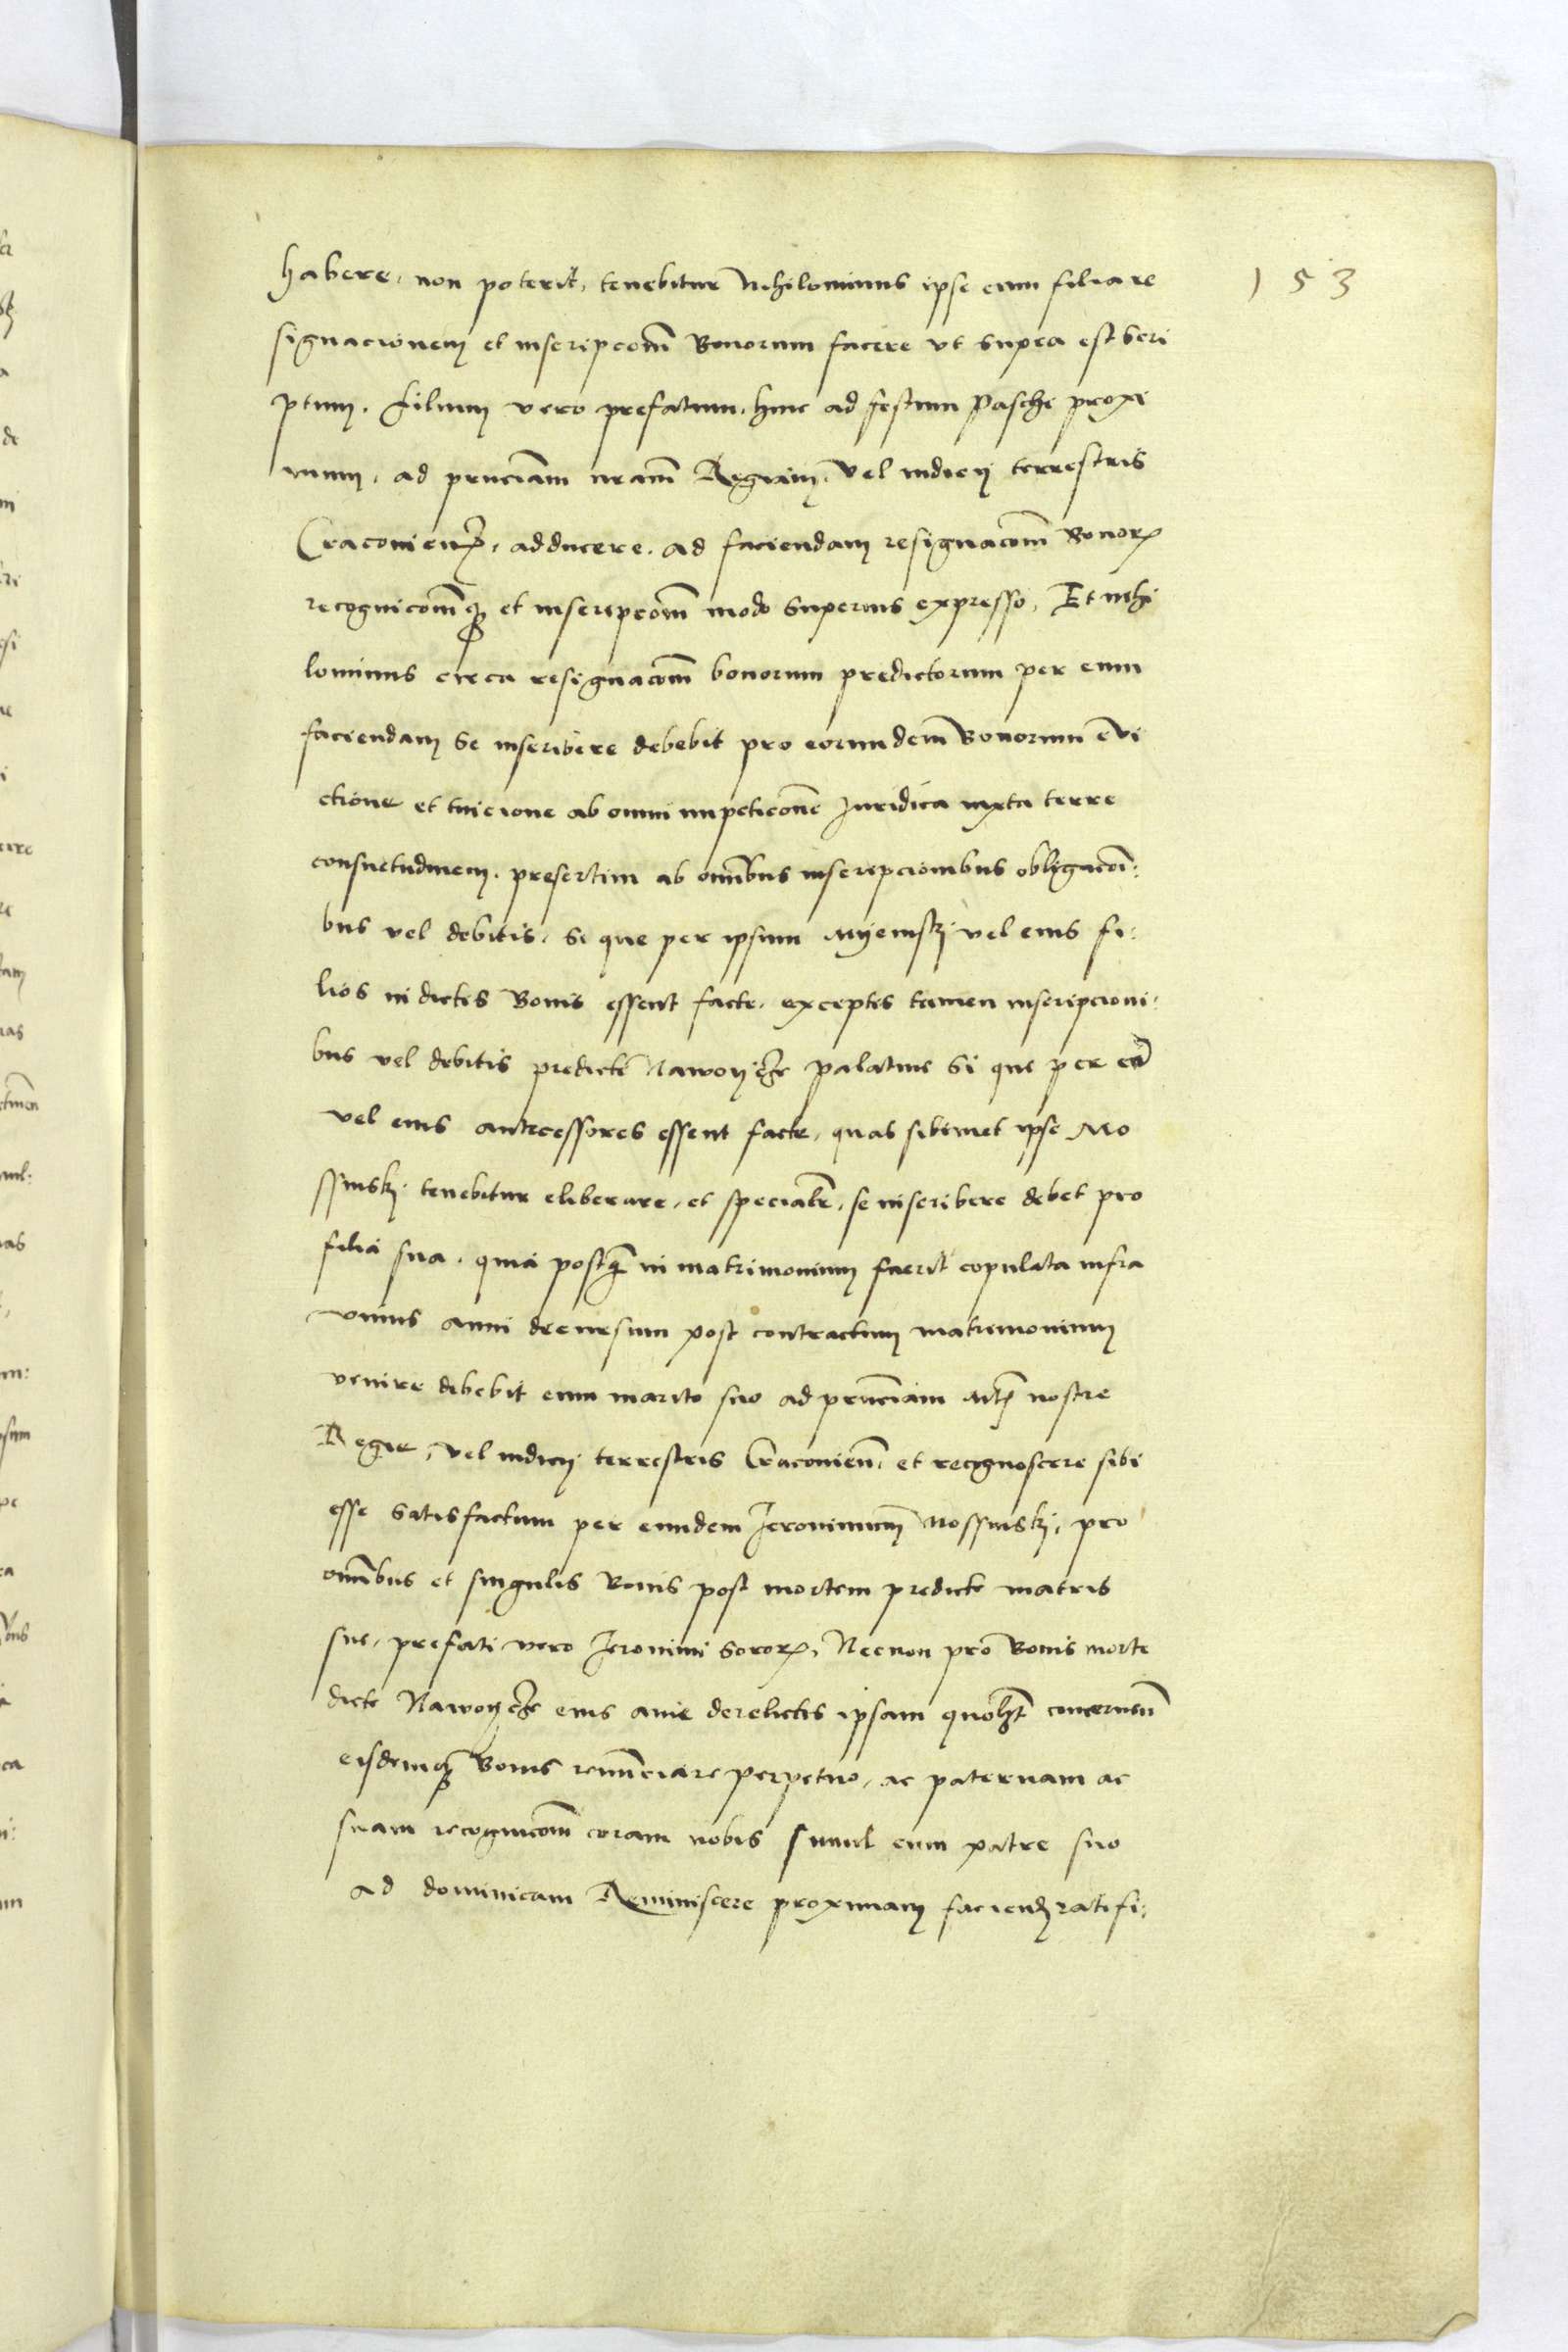 153
habere, non poterit, tenebitur Nihilominus ipse cum filia re
signacionem et inscripcom̄ Bonorum facere vt supra est scri
ptum. filium vero prefatum. hinc ad festum Pasche proxi
mum, ad pn̄ciam nr̄am Regiam, vel iudicij terrestris
Cracovien̄, adducere, ad faciendam resignacom̄ Bonor̄
recognicom̄q̄ et inscripcom̄ modo superius expresso, Et nihi
lominus circa resignacom̄ bonorum predictorum per eum
faciendam se inscribere debebit pro eorundem Bonorum evi
ctione et tuicione ab omni impeticone Juridica iuxta terre
consuetudinem. presertim ab omībus inscripcionibus obligacōi:
bus vel debitis, si que per ipsum Myemsky vel eius fi:
lios in dictis Bonis essent facte. exceptis tamen inscripcioni:
bus vel debitis predicte palatine si que per eā
vel eius antecessores essent facte, quas sibimet ipse Mo
ssinskj tenebitur eliberare, et specialr̄, se inscribere debet pro
filia sua. quia postq̄ in matrimonium fuerit copulata infra
vnius anni decursum post contractum matrimonium
venire debebit cum marito suo ad pn̄ciam Mt̄ nostre
Regie, vel iudicij terrestris Cracovien̄, et recognoscere sibi
esse satisfactum per eundem Jeronimum Mossinskj, pro
omībus et singulis Bonis post mortem predicte matris
sue, prefati vero Jeronimi soror̄, Necnon pro Bonis morte
dicte eius avie derelictis ipsam quol̄t concernen̄
eisdemq̄ Bonis renūciare perpetuo, ac paternam ac
suam recognicom̄ coram nobis simul cum patre suo
ad dominicam Reminiscere proximam faciend̄ ratifi: